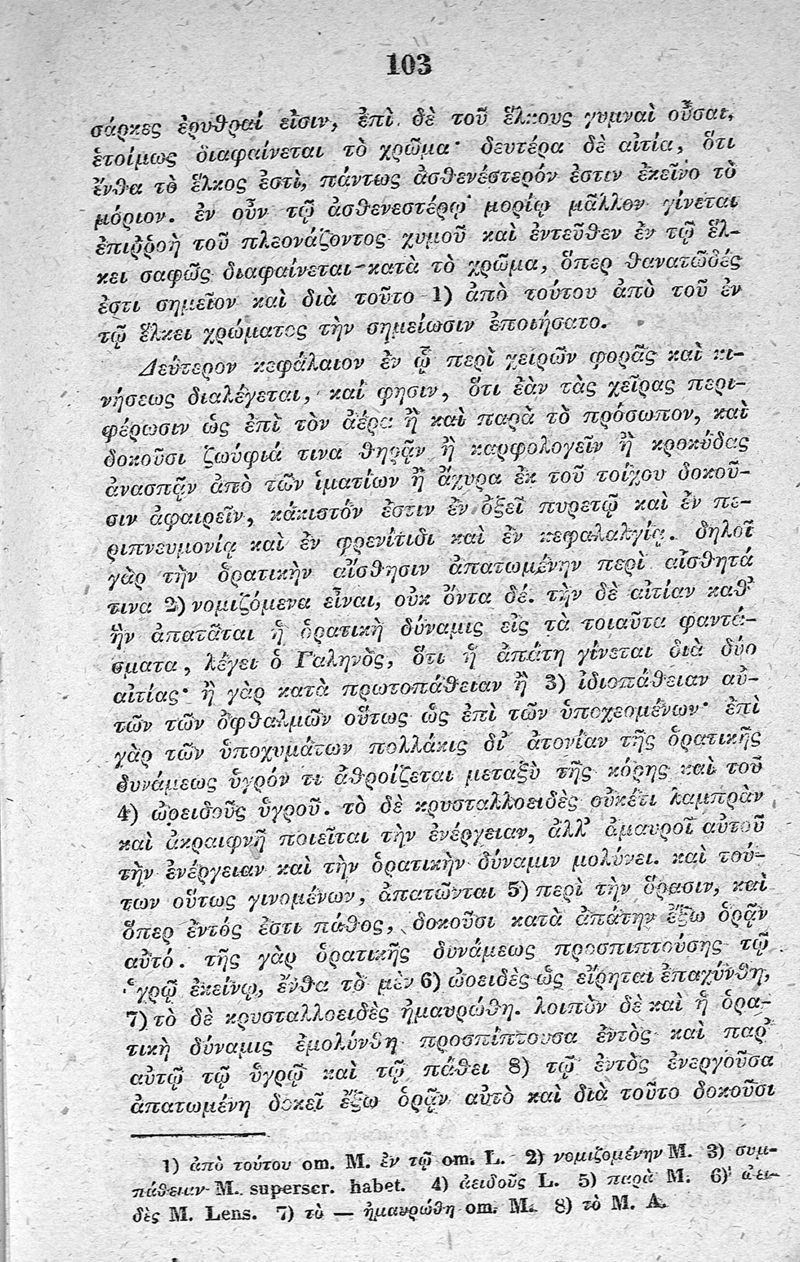 103
σάρκες ἐρυθραί εἰσιν, ἐπὶ δὲ τοῦ ἕλκους γυμναὶ οὖσαι,
ἑτοίμως διαφαίνεται τὸ χρῶμα· δευτέρα δὲ αἰτία, ὅτι
ἔνθα τὸ ἕλκος ἐστὶ, πάντως ἀσθενέστερόν ἐστιν ἐκεῖνο τὸ
μόριον. ἐν οὖν τῷ ἀσθενεστέρῳ μορίῳ μᾶλλον γίνεται
ἐπιῤῥοὴ τοῦ πλεονάζοντος χυμοῦ καὶ ἐντεῦθεν ἐν τῷ ἕλ-
κει σαφῶς διαφαίνεται κατὰ τὸ χρῶμα, ὅπερ θανατῶδές
ἐστι σημεῖον καὶ διὰ τοῦτο 1) ἀπὸ τούτου ἀπὸ τοῦ ἐν
τῷ ἕλκει χρώματος τὴν σημείωσιν ἐποιήσατο.
Δεύτερον κεφάλαιον ἐν ᾧ περὶ χειρῶν φορᾶς καὶ κι-
νήσεως διαλέγεται, καί φησιν, ὅτι ἐὰν τὰς χεῖρας περι-
φέρωσιν ὡς ἐπὶ τὸν ἀέρα ἢ καὶ παρὰ τὸ πρόσωπον, καὶ
δοκοῦσι ζωύφιά τινα θηρᾷν ἢ καρφολογεῖν ἢ κροκύδας
ἀνασπᾷν ἀπὸ τῶν ἱματίων ἢ ἄχυρα ἐκ τοῦ τοίχου δοκοῦ-
σιν ἀφαιρεῖν, κάκιστόν ἐστιν ἐν ὀξεῖ πυρετῷ καὶ ἐν πε-
ριπνευμονίᾳ καὶ ἐν φρενίτιδι καὶ ἐν κεφαλαλγίᾳ. δηλοῖ
γὰρ τὴν ὁρατικὴν αἴσθησιν ἀπατωμένην περὶ αἰσθητά
τινα 2) νομιζόμενα εἶναι, οὐκ ὄντα δέ. τὴν δὲ αἰτίαν καθ᾽
ἣν ἀπατᾶται ἡ ὁρατικὴ δύναμις εἰς τὰ τοιαῦτα φαντά-
σματα, λέγει ὁ Γαληνὸς, ὅτι ἡ ἀπάτη γίνεται διὰ δύο
αἰτίας· ἢ γὰρ κατὰ πρωτοπάθειαν ἢ 3) ἰδιοπάθειαν αὐ-
τῶν τῶν ὀφθαλμῶν οὕτως ὡς ἐπὶ τῶν ὑποχεομένων· ἐπὶ
γὰρ τῶν ὑποχυμάτων πολλάκις δι᾽ ἀτονίαν τῆς ὁρατικῆς
δυνάμεως ὑγρόν τι ἀθροίζεται μεταξὺ τῆς κόρης καὶ τοῦ
4) ὠοειδοῦς ὑγροῦ. τὸ δὲ κρυσταλλοειδὲς οὐκέτι λαμπρὰν
καὶ ἀκραιφνῆ ποιεῖται τὴν ἐνέργειαν, ἀλλ᾽ ἀμαυροῖ αὐτοῦ
τὴν ἐνέργειαν καὶ τὴν ὁρατικὴν δύναμιν μολύνει. καὶ τού-
των οὕτως γινομένων, ἀπατῶνται 5) περὶ τὴν ὅρασιν, καὶ
ὅπερ ἐντός ἐστι πάθος, δοκοῦσι κατὰ ἀπάτην ἔξω ὁρᾷν
αὐτό. τῆς γὰρ ὁρατικῆς δυνάμεως προσπιπτούσης τῷ
ὑγρῷ ἐκείνῳ, ἔνθα τὸ μὲν 6) ὠοειδὲς ὡς εἴρηται ἐπαχύνθη,
7) τὸ δὲ κρυσταλλοειδὲς ἠμαυρώθη. λοιπὸν δὲ καὶ ἡ ὁρα-
τικὴ δύναμις ἐμολύνθη προσπίπτουσα ἐντὸς καὶ παρ᾽
αὐτῷ τῷ ὑγρῷ καὶ τῷ πάθει 8) τῷ ἐντὸς ἐνεργοῦσα
ἀπατωμένη δοκεῖ ἔξω ὁρᾷν αὐτὸ καὶ διὰ τοῦτο δοκοῦσι
1) ἀπὸ τούτου om. M. ἐν τῷ om. L. 2) νομιζομένην M. 3) συμ-
πάθειαν M. superscr. habet. 4) ἀειδοῦς L. 5) παρὰ M. 6) ἀει-
δὲς M. Lens. 7) τὸ — ἠμαυρώθη om. M. 8) τὸ M. A.